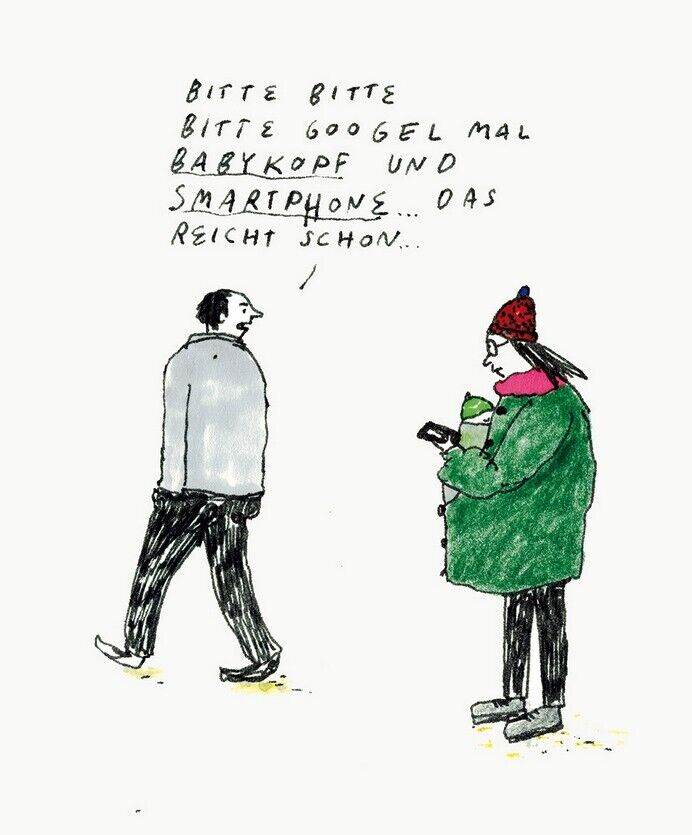 BITTE BITTE
BITTE GOOGEL MAL
BABYKOPF UND
SMARTPHONE... DAS
REICHT SCHON...